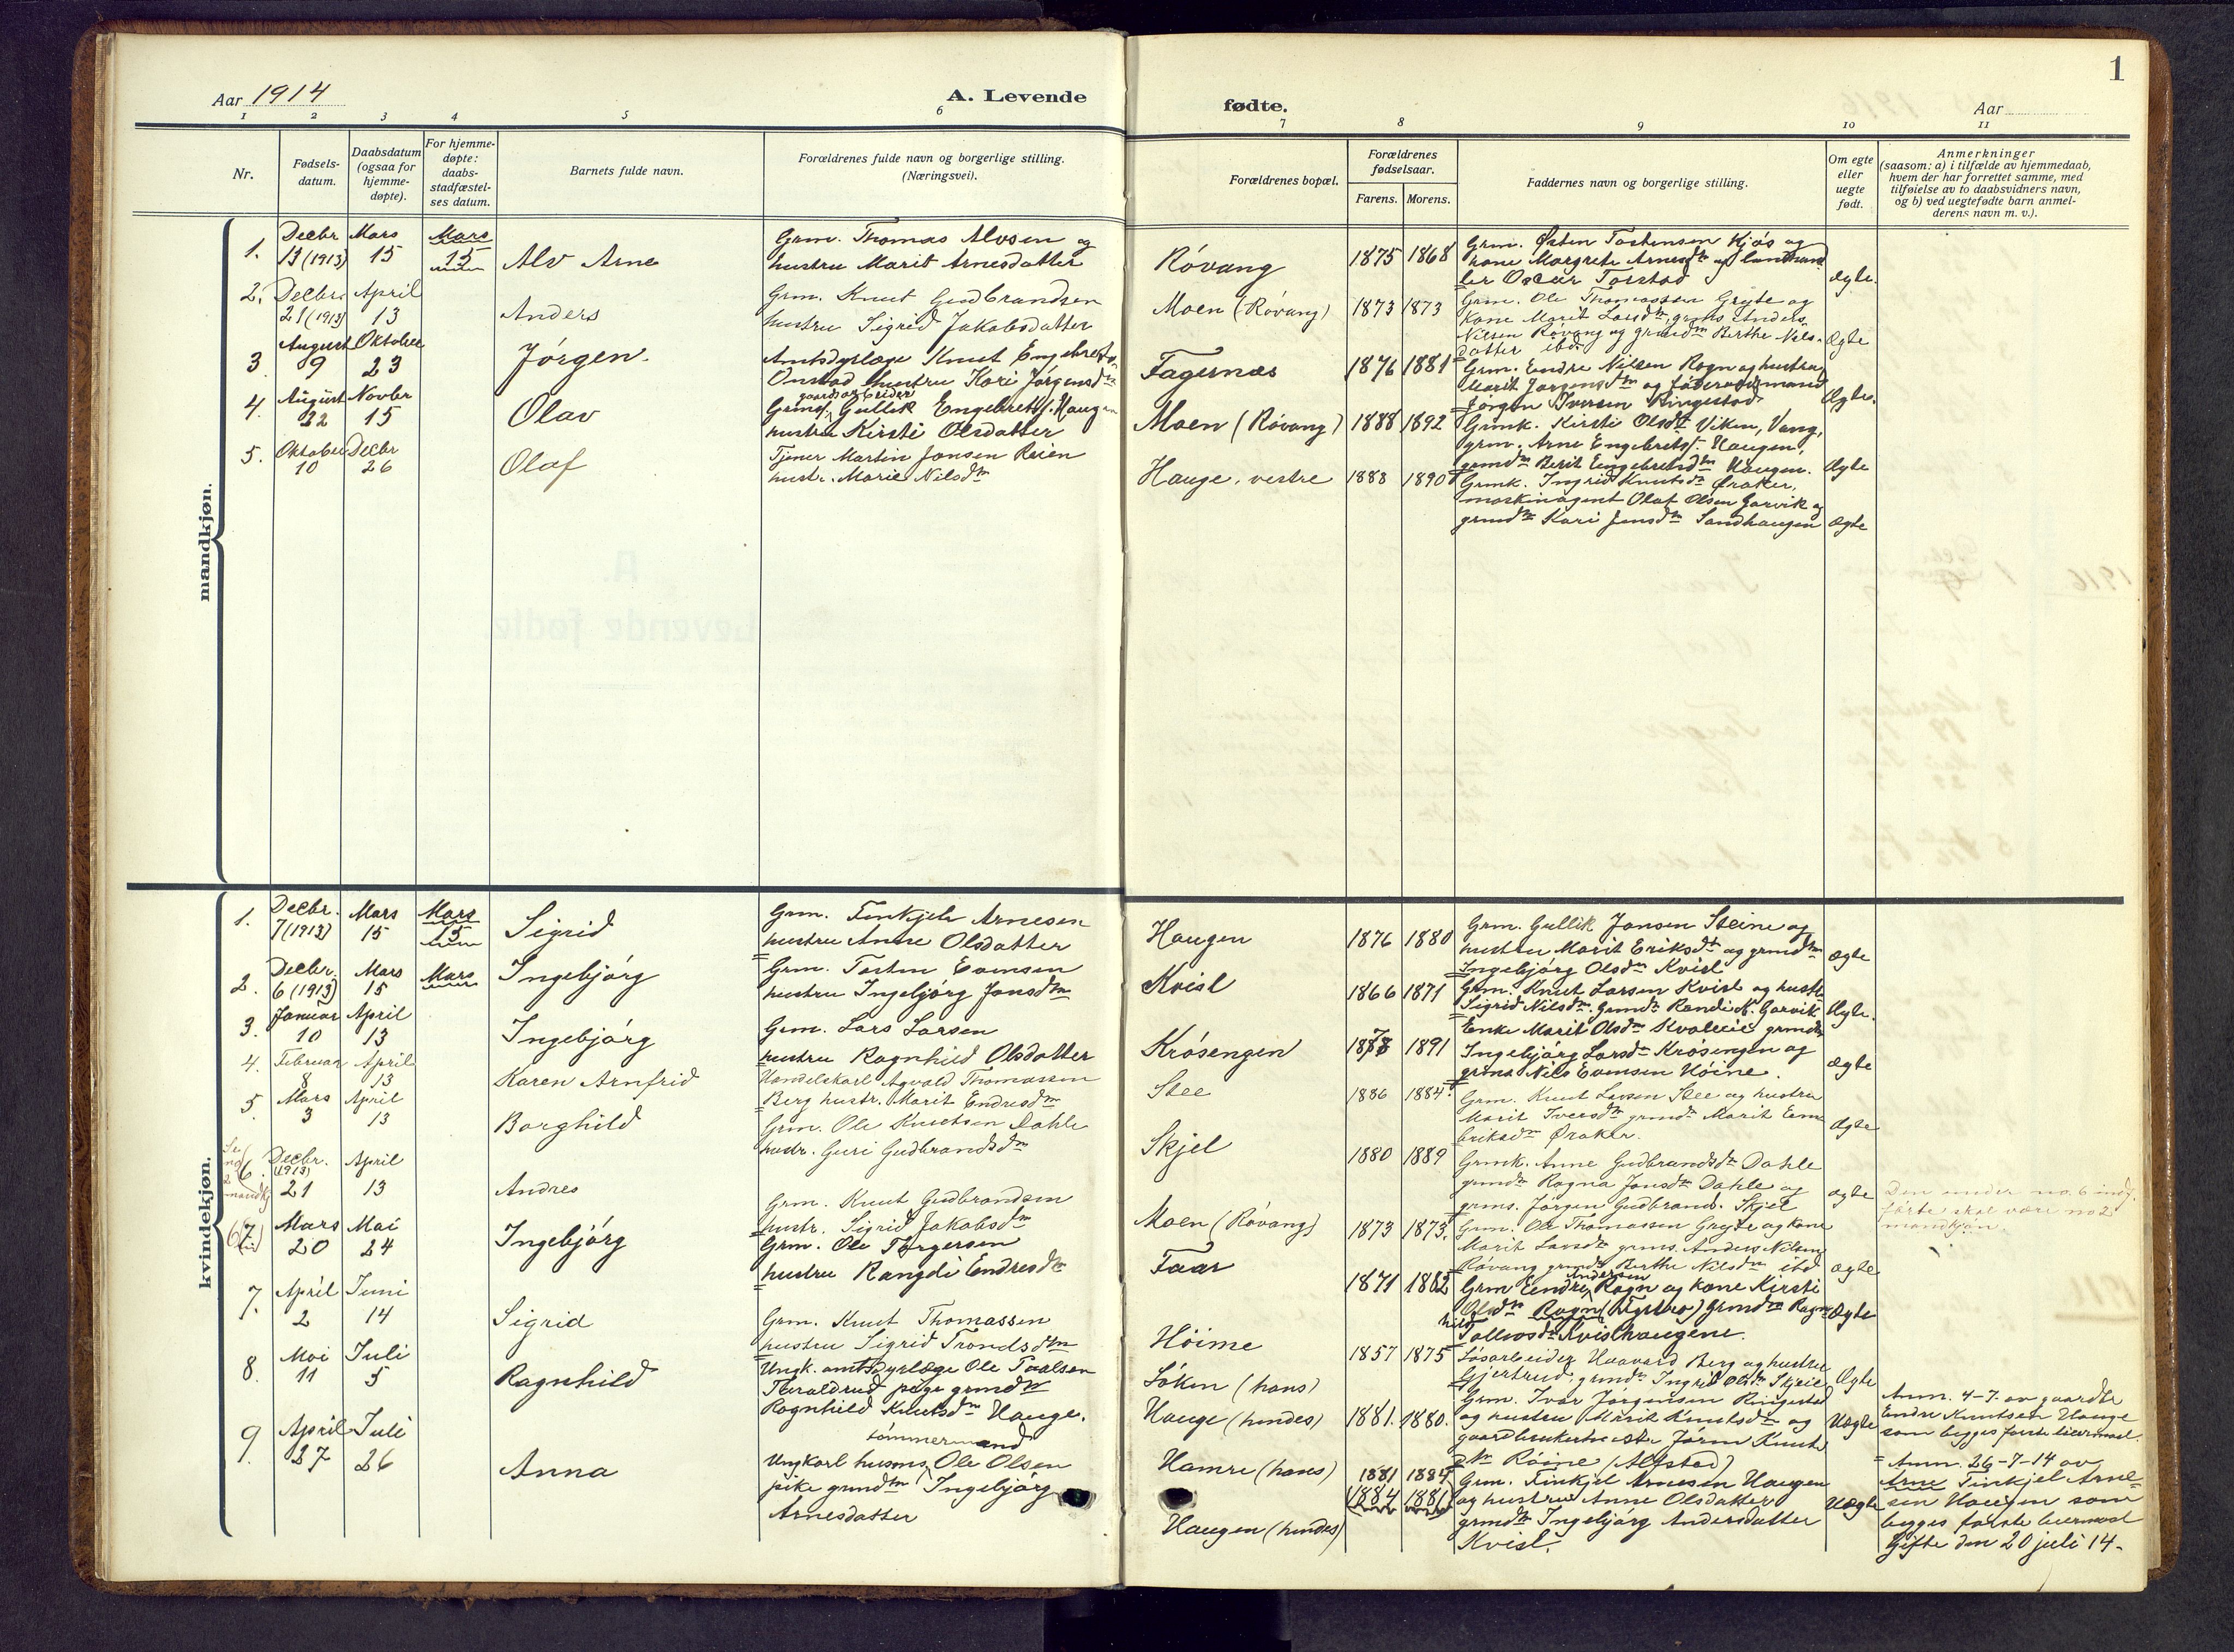 1
Aar 1914
A. Levende
fødte.
Aar
1 2 3 4 5 6 7 8 9 10 11
Nr.
Fødsels-
datum.
Daabsdatum
(ogsaa for
hjemme-
døpte).
For hjemme-
døpte:
daabs-
stadfæstel-
ses datum.
Barnets fulde navn.
Forældrenes fulde navn og borgerlige stilling.
(Næringsvei).
Forældrenes bopæl.
Forældrenes
fødselsaar.
Farens. Morens.
Faddernes navn og borgerlige stilling.
Om egte
eller
uegte
født.
Anmerkninger
(saasom: a) i tilfælde av hjemmedaab,
hvem der har forrettet samme, med
tilføielse av to daabsvidners navn,
og b) ved uegtefødte barn anmel-
derens navn m. v.).
mandkjøn.
1. Decbr 13 (1913) Mars 15 Mars 15
Alv Arne
Grm. Thomas Alvsen og
hustru Marit Arnesdatter
Róvang 1875 1868
Grm. Østen Tostensen Kjós og
kone Margrete Arnesdtr og
Oscar Torstad
ægte.
2. Decbr. 21 (1913) April 13
Anders
Grm. Knut Gudbrandsen
hustru Sigrid Jakobsdatter
Moen (Róvang) 1873 1873
Grm. Ole Thomassen Grybe og
kone Marit Larsdtr, grms. Anders
Nilsen Róvang og grmdtr Berthe Nils-
datter ibd.
Ægte
3. August 9 Oktober 23
Jórgen.
Amtsdyrlæge Knut Engebrets.
Onstad hustru Kari Jórgensdtr
Fagernæs 1876 1881
Grm. Endre Nilsen Rogn og hustru
Marit Jørgensdtr og føderaadsmand
Jórgen Iversen Ringestad
Ægte.
4. August 22 Novbr 15
Olav
gaardsarbeider
Grms. Gullik Engebrets. Haugen
hustru Kirsti Olsdatter
Moen (Róvang) 1888 1892
Grmk. Kirsti Olsdtr Viken, Vang,
grm. Arne Engebrets. Haugen,
grmdtr Berit Engebretsdtr Haugen.
Ægte
5. Oktober 10 Decbr 26
Olaf
Tjener Martin Jonsen Reien
hustr. Marie Nilsdtr
Hauge, vestre 1888 1890
Grmk. Ingrid Knutsdtr Øraker,
maskinagent Olaf Olsen Garvik og
grmdtr Kari Jensdtr Sandhaugen
Ægte
kvindekjøn.
1. Decbr. 7 (1913) Mars 15 Mars 15
Sigrid
Grm. Finkjel Arnesen
hustru Anne Olsdatter
Haugen 1876 1880
Grm. Gullik Jonsen Steine og
hustru Marit Eriksdtr og grmdtr
Ingebjórg Olsdtr Kvisl
ægte
2. Decbr. 6 (1913) Mars 15 Mars
Ingebjórg
Grm. Tosten Evensen
hustru Ingebjórg Jonsdtr
Kvisl 1866 1871
Grm. Knut Larsen Kvisl og hustr.
Sigrid Nilsdtr. Grmdtr Randi K. Garvik
Ægte.
3. Januar 10 April 13
Ingebjórg
Grm. Lars Larsen
hustru Ragnhild Olsdatter
Krósengen 1878 1891
Enke Marit Olsdtr Kvaleeie grmdtr
Ingebjórg Larsdtr Krósengen og
grms Nils Evensen Hóine.
ægte
4. Februar 8 April 13
Karen Arnfrid
Handelskarl Agvald Thomassen
Berg hustr. Marit Endresdtr
Stee 1886 1884.
Grm. Knut Larsen Stee og hustru
Marit Iversdtr grmdtr Marit
Eriksdtr Øraker.
ægte
5. Mars 3 April 13
Borghild
Grm. Ole Knutsen Dahle
hustr. Guri Gudbrandsdtr
Skjel 1880 1889
Grmk. Anne Gudbrandsdtr Dahle
grmdtr Ragna Jonsdtr Dahle og
grms. Jórgen Gudbrands. Skjel
ægte
Se no 2 mandkj
6. Decbr. (1913) 21 April 13
Andres
Grm. Knut Gudbrandsen
hustr. Sigrid Jakobsdtr
Moen (Róvang) 1873 1873.
Grm. Ole Thomassen Grybe og kone
Marit Larsdtr grms. Anders Nilsen
Róvang grmdtr Berthe Nilsdtr ibd
ægte
Den under no. 6 ind-
førte skal være no 2
mandkjøn.
6 7 Mars 20 Mai 24
Ingebjórg
Grm. Ole Torgersen
hustru Rangdi Endresdtr
Faar 1871 1882
Grm Endre Andersen Rogn og kone Kirsti
Olsdtr Rogn Grmdtr Ragn-
hild Tollevsdtr Kvislhaugene.
Ægte
7. April 2 Juni 14
Sigrid
Grm. Knut Thomassen
hustru Sigrid Trondsdtr
Hóime 1857 1875
Løsarbeider Haavard Berg og hustru
Gjertrud, grmdtr Ingrid Olsdtr Skjeie
Ægte
8. Mai 11 Juli 5
Ragnhild
Ungk. amtsdyrlæge Ole Paalsen
Theraldrud pige grmdtr
Ragnhild Knutsdtr Hauge.
Lóken (hans)
Hauge (hendes) 1881. 1880.
Grm. Ivar Jørgensen Ringestad
og hustru Marit Knutsdtr og
gaardbruker Jørn
Róine (Alfstad)
Uægte
Anm. 4-7. av gaardbr
Endre Knutsen Hauge
som begges første leiermaal.
9. April 27 Juli 26
Anna
tømmermand
Ungkarl husms. Ole Olsen
pike grmdtr Ingebjórg
Arnesdatter
Hamre (hans)
Haugen (hendes)
1881 1884
1884 1881
Grm. Finkjel Arnesen Haugen
og hustru Anne Olsdatter
grmdtr Ingebjórg Andersdatter
Kvisl.
Uægte
Anm. 26-7-14 av
Arne Finkjel Arne-
sen Haugen som
begges første leiermaal
Gifte den 20 juli 14.